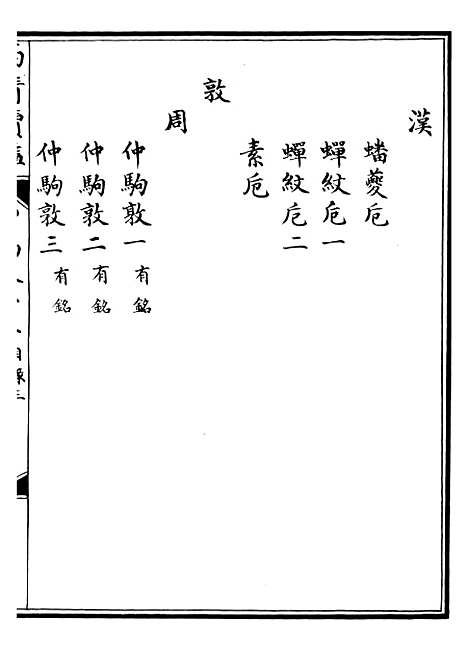 漢
蟠夔卮
蟬紋卮一
蟬紋卮二
素卮
敦
周
仲駒敦一 有銘
仲駒敦二 有銘
仲駒敦三 有銘
目錄三